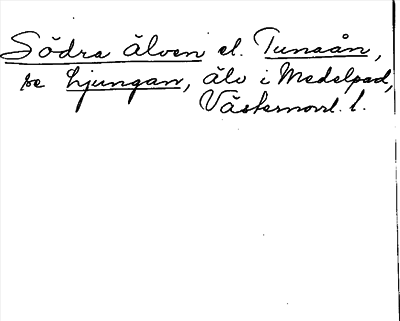 Södra älven el. Tunaån,
se Ljungan, älv i Medelpad,
Västernorrl. l.